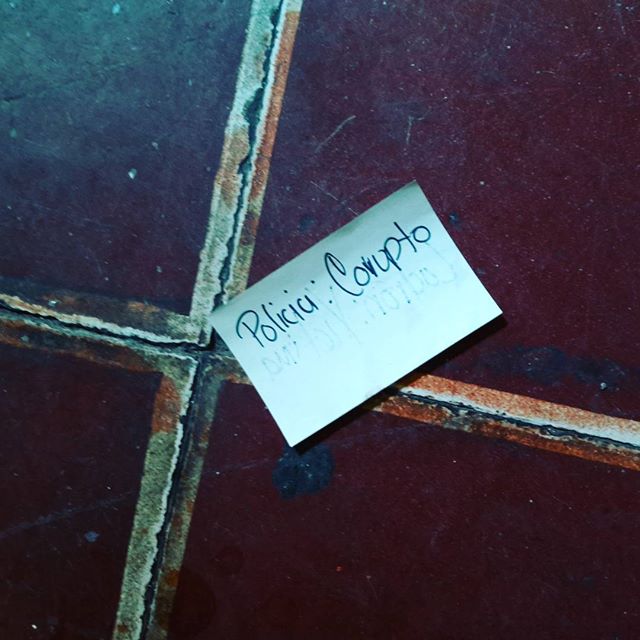 Policia: Corupto